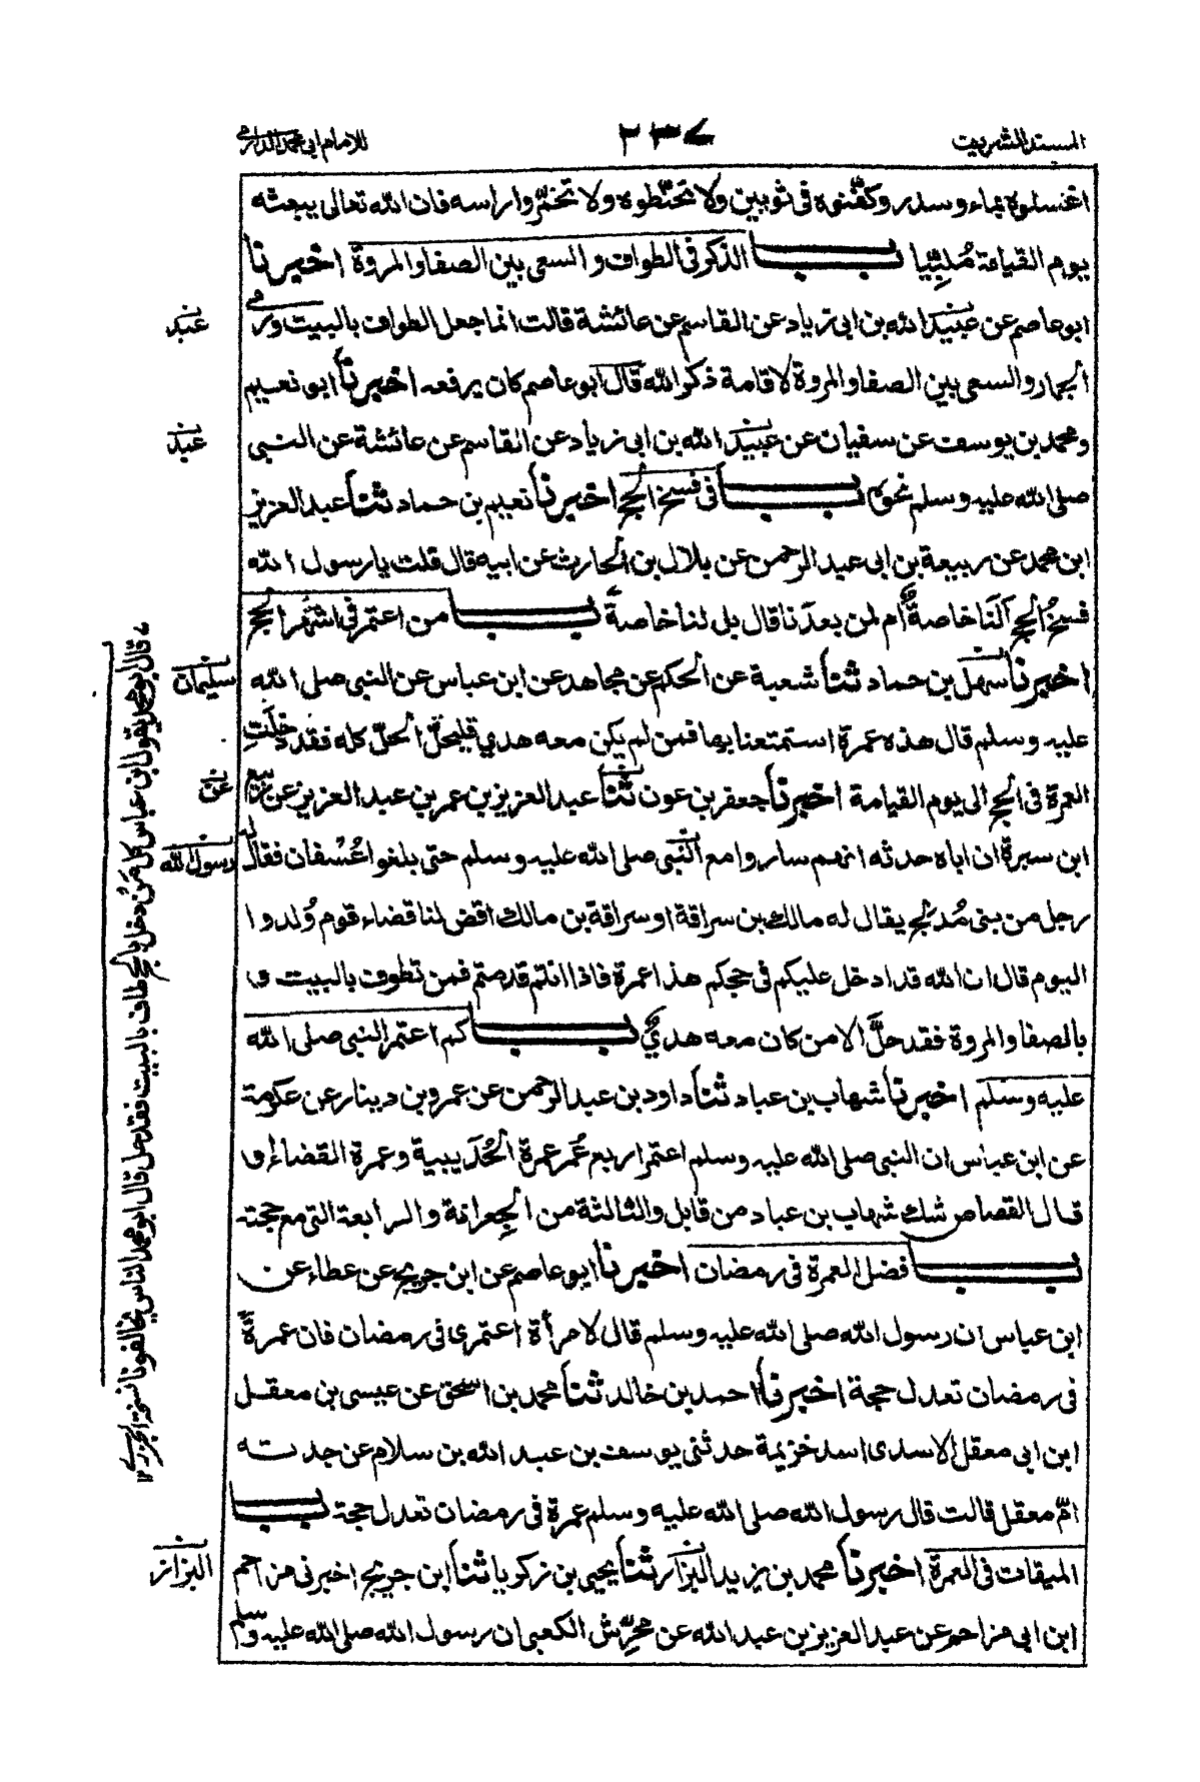 المسند الشريف
٢٣٧
للامام ابى محمد الدارمى
اغسلوه بماء وسدر وكفّنوه فى ثوبين ولا تحنّطوه ولا تخمّروا راسه فان الله تعالى يبعثه
يوم القيامة مُلبِّيا بــــاب الذكر فى الطواف والسعى بين الصفا والمروة اخبرنا
ابو عاصم عن عبيد الله بن ابى زياد عن القاسم عن عائشة قالت انما جعل الطواف بالبيت ورمى
الجمار والسعى بين الصفا والمروة لاقامة ذكر الله قال ابو عاصم كان يرفعه اخبرنا ابو نعيم
ومحمد بن يوسف عن سفيان عن عبيد الله بن ابى زياد عن القاسم عن عائشة عن النبى
صلى الله عليه وسلم نحوه بــــاب فى فسخ الحج اخبرنا نعيم بن حماد ثنا عبد العزيز
ابن محمد عن ربيعة بن ابى عبد الرحمن عن بلال بن الحارث عن ابيه قال قلت يا رسول الله
فسخُ الحج اَلَنا خاصةً ام لمن بعدَنا قال بل لنا خاصةً بــــاب من اعتمر فى اشهر الحج
اخبرنا سهل بن حماد ثنا شعبة عن الحكم عن مجاهد عن ابن عباس عن النبى صلى الله
عليه وسلم قال هذه عمرة استمتعنا بها فمن لم يكن معه هدي فليحلّ الحلّ كله فقد دخلَتِ
العمرة فى الحج الى يوم القيامة اخبرنا جعفر بن عون ثنا عبد العزيز بن عمر بن عبد العزيز عن ربيع
ابن سبرة ان اباه حدثه انهم ساروا مع النبى صلى الله عليه وسلم حتى بلغوا عُسْفان فقال له
رجل من بنى مُدلج يقال له مالك بن سراقة او سراقة بن مالك اقض لنا قضاء قوم وُلدوا
اليوم قال ان الله قد ادخل عليكم فى حجكم هذا عمرة فاذا انتم قدمتم فمن تطوف بالبيت و
بالصفا والمروة فقد حلَّ الا من كان معه هديٌ بــــاب كم اعتمر النبى صلى الله
عليه وسلم اخبرنا شهاب بن عباد ثنا داود بن عبد الرحمن عن عمرو بن دينار عن عكرمة
عن ابن عباس ان النبى صلى الله عليه وسلم اعتمر اربع عُمَر عمرة الحُدَيبية وعمرة القضاء او
قال القصاص شك شهاب بن عباد من قابل والثالثة من الجِعرانة والرابعة التى مع حجته
بــــاب فضل العمرة فى رمضان اخبرنا ابو عاصم عن ابن جريج عن عطاء عن
ابن عباس ان رسول الله صلى الله عليه وسلم قال لامرأة اعتمرى فى رمضان فان عمرةً
فى رمضان تعدل حجة اخبرنا احمد بن خالد ثنا محمد بن اسحق عن عيسى بن معقل
ابن ابى معقل الاسدى اسد خزيمة حدثنى يوسف بن عبد الله بن سلام عن جدته
امّ معقل قالت قال رسول الله صلى الله عليه وسلم عمرة فى رمضان تعدل حجة بــــاب
الميقات فى العمرة اخبرنا محمد بن يزيد البزاز ثنا يحيى بن زكريا ثنا ابن جريج اخبرنى مزاحم
ابن ابى مزاحم عن عبد العزيز بن عبد الله عن محرّش الكعبى ان رسول الله صلى الله عليه وسلم
عبد
عبد
سليمان
عن
رسول الله
البزاز
قال ابو محمد يقول ابن عباس كل مَنْ دخل بالحج طاف بالبيت فقد حل قال ابو محمد الناس يخالفونا نسخة ١٢